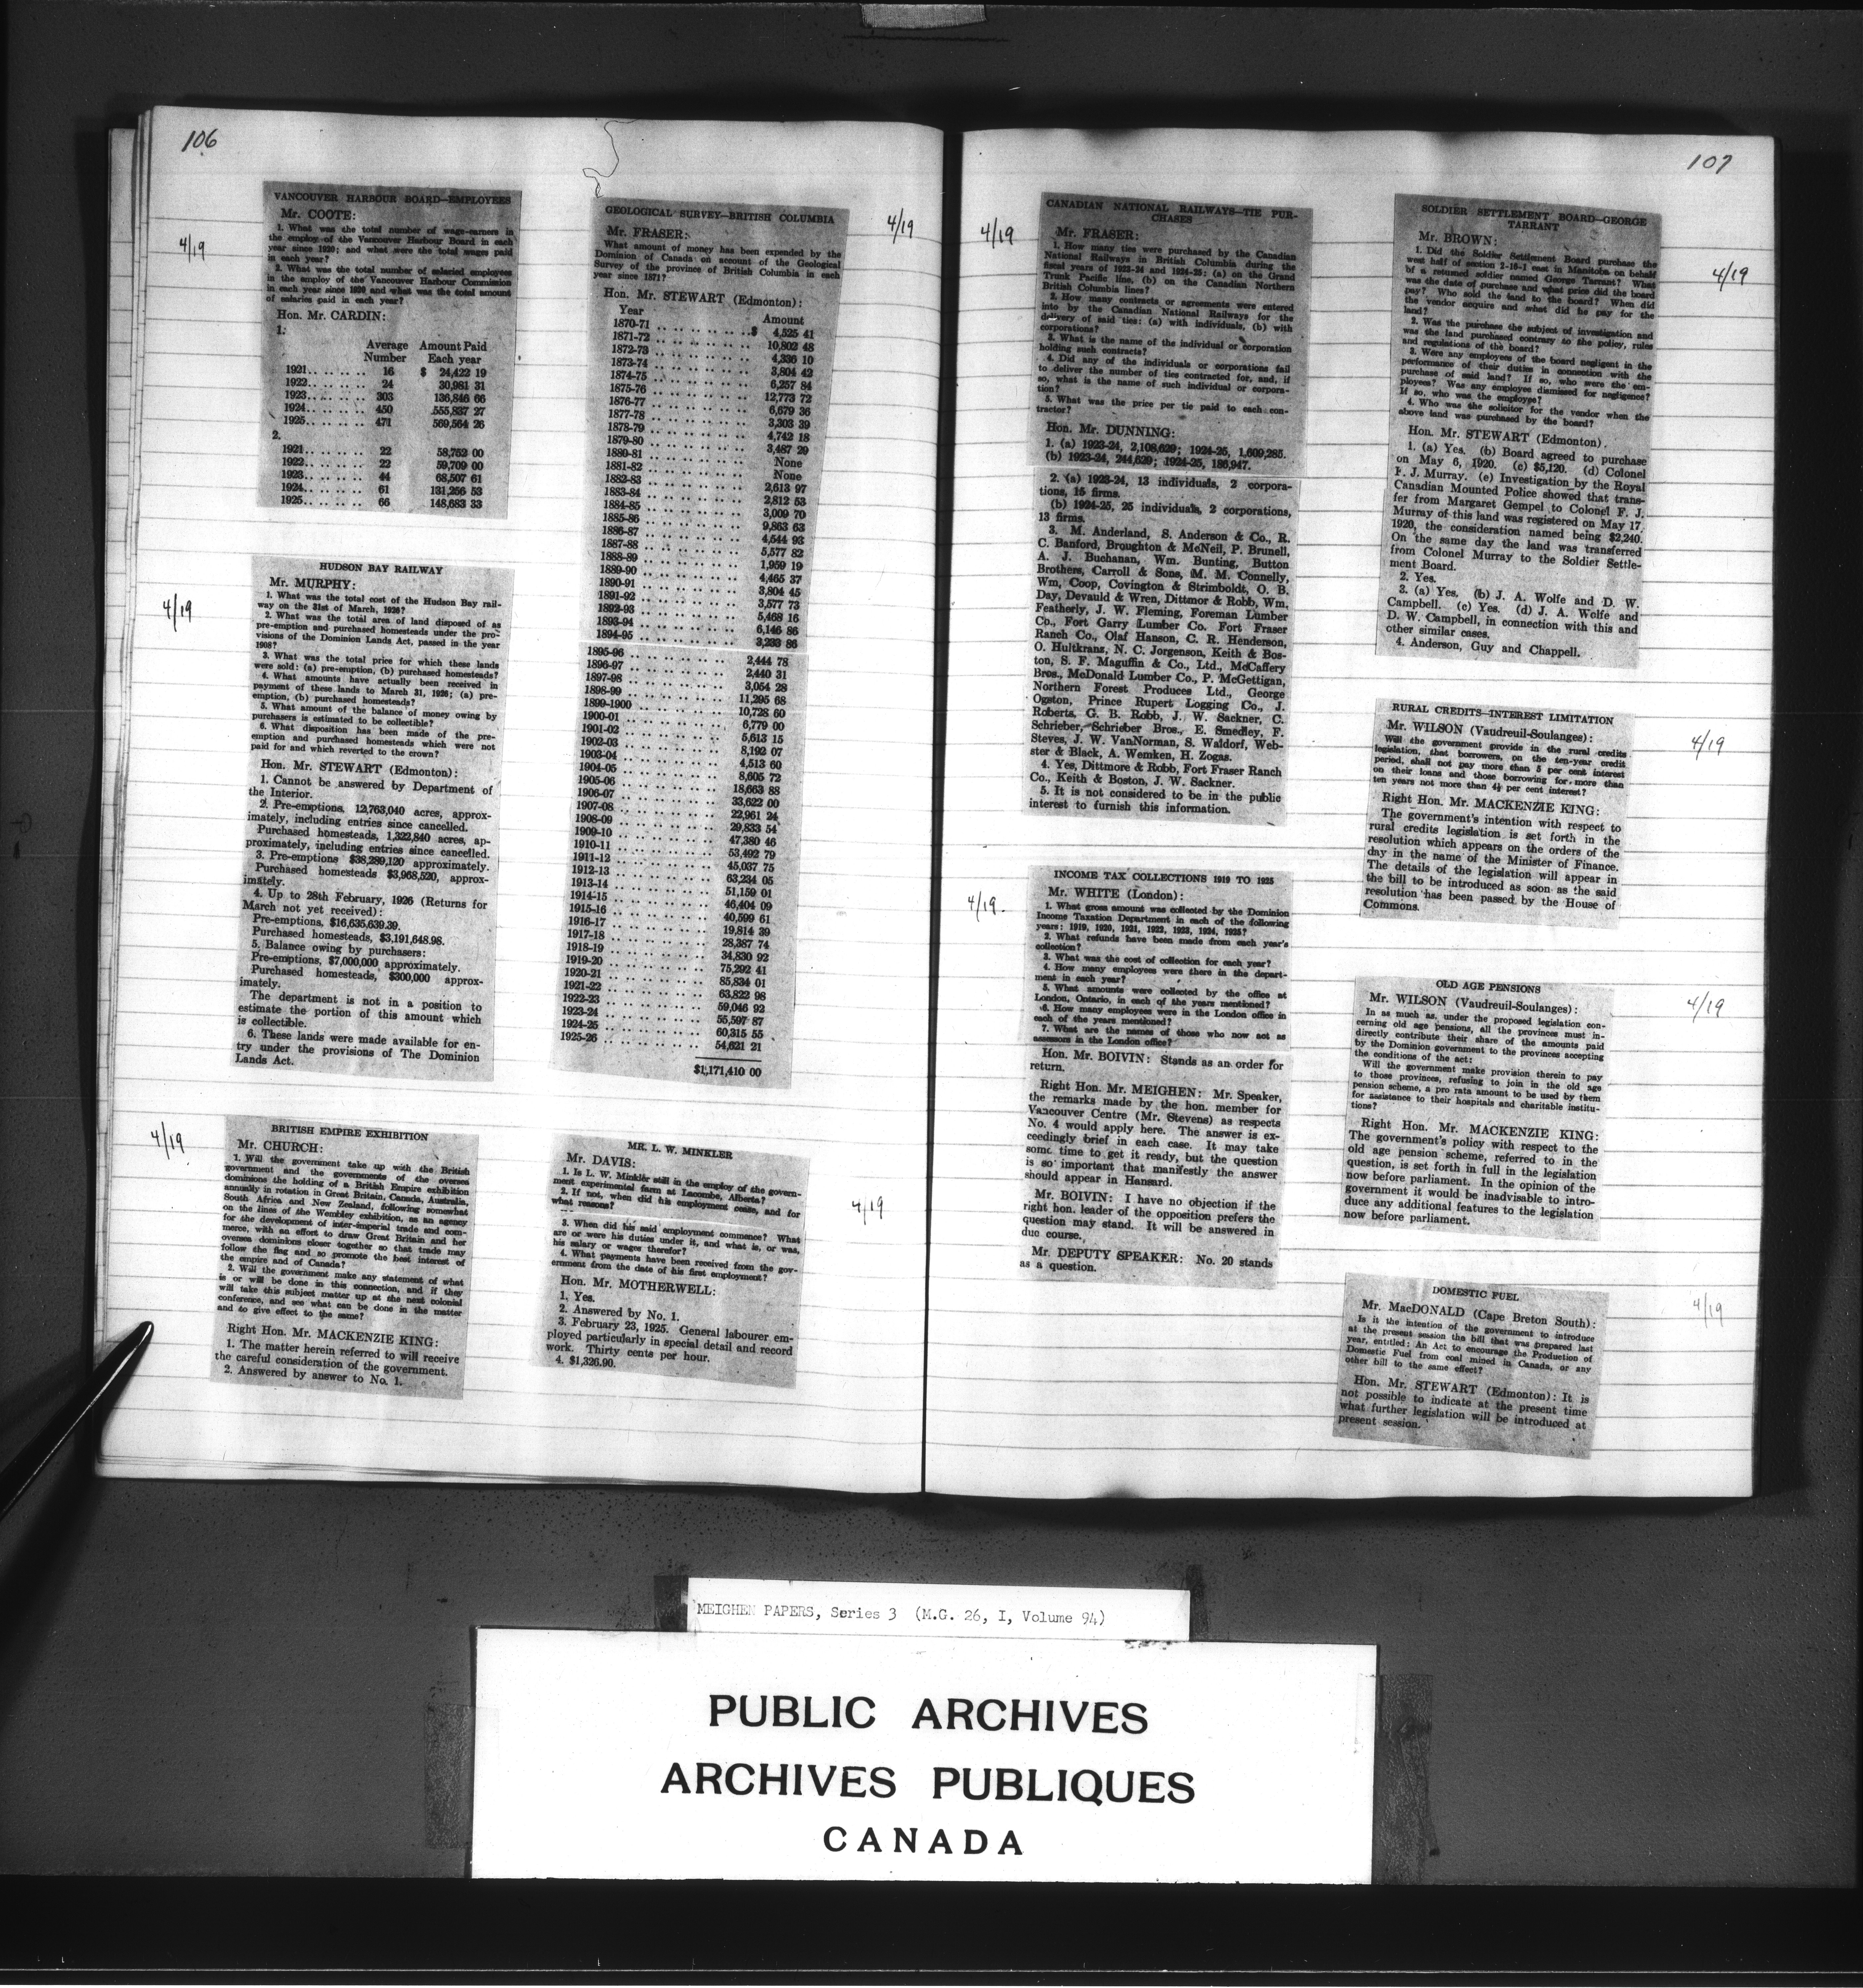 106
4/19
VANCOUVER HARBOUR BOARD—EMPLOYEES
Mr. COOTE:
1. What was the total number of wage-earners in
the employ of the Vancouver Harbour Board in each
year since 1920; and what were the total wages paid
in each year?
2. What was the total number of salaried employees
in the employ of the Vancouver Harbour Commission
in each year since 1920 and what was the total amount
of salaries paid in each year?
Hon. Mr. CARDIN:
1.
Average Amount Paid
Number Each year
1921.. .. .. .. 16 $ 24,422 19
1922.. .. .. .. 24 30,981 31
1923.. .. .. .. 303 136,846 66
1924.. .. .. .. 450 555,837 27
1925.. .. .. .. 471 569,564 26
2.
1921.. .. .. .. 22 58,752 00
1922.. .. .. .. 22 59,709 00
1923.. .. .. .. 44 68,507 61
1924.. .. .. .. 61 131,256 53
1925.. .. .. .. 66 148,683 33
4/19
HUDSON BAY RAILWAY
Mr. MURPHY:
1. What was the total cost of the Hudson Bay rail-
way on the 31st of March, 1926?
2. What was the total area of land disposed of as
pre-emption and purchased homesteads under the pro-
visions of the Dominion Lands Act, passed in the year
1908?
3. What was the total price for which these lands
were sold: (a) pre-emption, (b) purchased homesteads?
4. What amounts have actually been received in
payment of these lands to March 31, 1926; (a) pre-
emption, (b) purchased homesteads?
5. What amount of the balance of money owing by
purchasers is estimated to be collectible?
6. What disposition has been made of the pre-
emption and purchased homesteads which were not
paid for and which reverted to the crown?
Hon. Mr. STEWART (Edmonton):
1. Cannot be answered by Department of
the Interior.
2. Pre-emptions, 12,763,040 acres, approx-
imately, including entries since cancelled.
Purchased homesteads, 1,322,840 acres, ap-
proximately, including entries since cancelled.
3. Pre-emptions $38,289,120 approximately.
Purchased homesteads $3,968,520, approx-
imately.
4. Up to 28th February, 1926 (Returns for
March not yet received):
Pre-emptions, $16,635,639.39.
Purchased homesteads, $3,191,648.98.
5. Balance owing by purchasers:
Pre-emptions, $7,000,000 approximately.
Purchased homesteads, $300,000 approx-
imately.
The department is not in a position to
estimate the portion of this amount which
is collectible.
6. These lands were made available for en-
try under the provisions of The Dominion
Lands Act.
4/19
BRITISH EMPIRE EXHIBITION
Mr. CHURCH:
1. Will the government take up with the British
government and the governments of the oversea
dominions the holding of a British Empire exhibition
annually in rotation in Great Britain, Canada, Australia,
South Africa and New Zealand, following somewhat
on the lines of the Wembley exhibition, as an agency
for the development of inter-imperial trade and com-
merce, with an effort to draw Great Britain and her
oversea dominions closer together so that trade may
follow the flag and so promote the best interest of
the empire and of Canada?
2. Will the government make any statement of what
is or will be done in this connection, and if they
will take this subject matter up at the next colonial
conference, and see what can be done in the matter
and to give effect to the same?
Right Hon. Mr. MACKENZIE KING:
1. The matter herein referred to will receive
the careful consideration of the government.
2. Answered by answer to No. 1.
4/19
GEOLOGICAL SURVEY—BRITISH COLUMBIA
Mr. FRASER:
What amount of money has been expended by the
Dominion of Canada on account of the Geological
Survey of the province of British Columbia in each
year since 1871?
Hon. Mr. STEWART (Edmonton):
Year Amount
1870-71 .. .. .. .. .. .. ..$ 4,525 41
1871-72 .. .. .. .. .. .. .. 10,802 48
1872-73 .. .. .. .. .. .. .. 4,336 10
1873-74 .. .. .. .. .. .. .. 3,804 42
1874-75 .. .. .. .. .. .. .. 6,257 84
1875-76 .. .. .. .. .. .. .. 12,773 72
1876-77 .. .. .. .. .. .. .. 6,679 36
1877-78 .. .. .. .. .. .. .. 3,303 39
1878-79 .. .. .. .. .. .. .. 4,742 18
1879-80 .. .. .. .. .. .. .. 3,487 29
1880-81 .. .. .. .. .. .. .. None
1881-82 .. .. .. .. .. .. .. None
1882-83 .. .. .. .. .. .. .. 2,613 97
1883-84 .. .. .. .. .. .. .. 2,812 53
1884-85 .. .. .. .. .. .. .. 3,009 70
1885-86 .. .. .. .. .. .. .. 9,863 63
1886-87 .. .. .. .. .. .. .. 4,544 93
1887-88 .. .. .. .. .. .. .. 5,577 82
1888-89 .. .. .. .. .. .. .. 1,959 19
1889-90 .. .. .. .. .. .. .. 4,465 37
1890-91 .. .. .. .. .. .. .. 3,804 45
1891-92 .. .. .. .. .. .. .. 3,577 73
1892-93 .. .. .. .. .. .. .. 5,468 16
1893-94 .. .. .. .. .. .. .. 6,146 86
1894-95 .. .. .. .. .. .. .. 3,233 86
1895-96 .. .. .. .. .. .. .. 2,444 78
1896-97 .. .. .. .. .. .. .. 2,440 31
1897-98 .. .. .. .. .. .. .. 3,054 28
1898-99 .. .. .. .. .. .. .. 11,295 68
1899-1900 .. .. .. .. .. .. 10,728 60
1900-01 .. .. .. .. .. .. .. 6,779 00
1901-02 .. .. .. .. .. .. .. 5,613 15
1902-03 .. .. .. .. .. .. .. 8,192 07
1903-04 .. .. .. .. .. .. .. 4,513 60
1904-05 .. .. .. .. .. .. .. 8,605 72
1905-06 .. .. .. .. .. .. .. 18,663 88
1906-07 .. .. .. .. .. .. .. 33,622 00
1907-08 .. .. .. .. .. .. .. 22,961 24
1908-09 .. .. .. .. .. .. .. 29,833 54
1909-10 .. .. .. .. .. .. .. 47,380 46
1910-11 .. .. .. .. .. .. .. 53,492 79
1911-12 .. .. .. .. .. .. .. 45,037 75
1912-13 .. .. .. .. .. .. .. 63,234 05
1913-14 .. .. .. .. .. .. .. 51,159 01
1914-15 .. .. .. .. .. .. .. 46,404 09
1915-16 .. .. .. .. .. .. .. 40,599 61
1916-17 .. .. .. .. .. .. .. 19,814 39
1917-18 .. .. .. .. .. .. .. 28,387 74
1918-19 .. .. .. .. .. .. .. 34,830 92
1919-20 .. .. .. .. .. .. .. 75,292 41
1920-21 .. .. .. .. .. .. .. 85,834 01
1921-22 .. .. .. .. .. .. .. 63,822 98
1922-23 .. .. .. .. .. .. .. 59,046 92
1923-24 .. .. .. .. .. .. .. 55,597 87
1924-25 .. .. .. .. .. .. .. 60,315 55
1925-26 .. .. .. .. .. .. .. 54,621 21
$1,171,410 00
4/19
MR. L. W. MINKLER
Mr. DAVIS:
1. Is L. W. Minkler still in the employ of the govern-
ment experimental farm at Lacombe, Alberta?
2. If not, when did his employment cease, and for
what reasons?
3. When did his said employment commence? What
are or were his duties under it, and what is, or was,
his salary or wages therefor?
4. What payments have been received from the gov-
ernment from the date of his first employment?
Hon. Mr. MOTHERWELL:
1. Yes.
2. Answered by No. 1.
3. February 23, 1925. General labourer em-
ployed particularly in special detail and record
work. Thirty cents per hour.
4. $1,326.90.
107
4/19
CANADIAN NATIONAL RAILWAYS—TIE PUR-
CHASES
Mr. FRASER:
1. How many ties were purchased by the Canadian
National Railways in British Columbia during the
fiscal years of 1923-24 and 1924-25: (a) on the Grand
Trunk Pacific line, (b) on the Canadian Northern
British Columbia lines?
2. How many contracts or agreements were entered
into by the Canadian National Railways for the
delivery of said ties: (a) with individuals, (b) with
corporations?
3. What is the name of the individual or corporation
holding such contracts?
4. Did any of the individuals or corporations fail
to deliver the number of ties contracted for, and, if
so, what is the name of such individual or corpora-
tion?
5. What was the price per tie paid to each con-
tractor?
Hon. Mr. DUNNING:
1. (a) 1923-24, 2,108,629; 1924-25, 1,609,285.
(b) 1923-24, 244,629; 1924-25, 186,947.
2. (a) 1923-24, 13 individuals, 2 corpora-
tions, 15 firms.
(b) 1924-25, 25 individuals, 2 corporations,
13 firms.
3. M. Anderland, S. Anderson & Co., R.
C. Banford, Broughton & McNeil, P. Brunell,
A. J. Buchanan, Wm. Bunting, Button
Brothers, Carroll & Sons, M. M. Connelly,
Wm, Coop, Covington & Strimboldt, O. B.
Day, Devauld & Wren, Dittmor & Robb, Wm.
Featherly, J. W. Fleming, Foreman Lumber
Co., Fort Garry Lumber Co. Fort Fraser
Ranch Co., Olaf Hanson, C. R. Henderson,
O. Hultkrans, N. C. Jorgenson, Keith & Bos-
ton, S. F. Maguffin & Co., Ltd., McCaffery
Bros., McDonald Lumber Co., P. McGettigan,
Northern Forest Produces Ltd., George
Ogston, Prince Rupert Logging Co., J.
Roberts, G. B. Robb, J. W. Sackner, C.
Schrieber, Schrieber Bros., E. Smedley, F.
Steves, J. W. VanNorman, S. Waldorf, Web-
ster & Black, A. Wemken, H. Zogas.
4. Yes, Dittmore & Robb, Fort Fraser Ranch
Co., Keith & Boston, J. W. Sackner.
5. It is not considered to be in the public
interest to furnish this information.
4/19.
INCOME TAX COLLECTIONS 1919 TO 1925
Mr. WHITE (London):
1. What gross amount was collected by the Dominion
Income Taxation Department in each of the following
years: 1919, 1920, 1921, 1922, 1923, 1924, 1925?
2. What refunds have been made from each year's
collection?
3. What was the cost of collection for each year?
4. How many employees were there in the depart-
ment in each year?
5. What amounts were collected by the office at
London, Ontario, in each of the years mentioned?
6. How many employees were in the London office in
each of the years mentioned?
7. What are the names of those who now act as
assessors in the London office?
Hon. Mr. BOIVIN: Stands as an order for
return.
Right Hon. Mr. MEIGHEN: Mr. Speaker,
the remarks made by the hon. member for
Vancouver Centre (Mr. Stevens) as respects
No. 4 would apply here. The answer is ex-
ceedingly brief in each case. It may take
some time to get it ready, but the question
is so important that manifestly the answer
should appear in Hansard.
Mr. BOIVIN: I have no objection if the
right hon. leader of the opposition prefers the
question may stand. It will be answered in
due course.
Mr. DEPUTY SPEAKER: No. 20 stands
as a question.
4/19
SOLDIER SETTLEMENT BOARD—GEORGE
TARRANT
Mr. BROWN:
1. Did the Soldier Settlement Board purchase the
west half of section 2-10-1 east in Manitoba on behalf
of a returned soldier named George Tarrant? What
was the date of purchase and what price did the board
pay? Who sold the land to the board? When did
the vendor acquire and what did he pay for the
land?
2. Was the purchase the subject of investigation and
was the land purchased contrary to the policy, rules
and regulations of the board?
3. Were any employees of the board negligent in the
performance of their duties in connection with the
purchase of said land? If so, who were the em-
ployees? Was any employee dismissed for negligence?
If so, who was the employee?
4. Who was the solicitor for the vendor when the
above land was purchased by the board?
Hon. Mr. STEWART (Edmonton).
1. (a) Yes. (b) Board agreed to purchase
on May 6, 1920. (c) $5,120. (d) Colonel
F. J. Murray. (e) Investigation by the Royal
Canadian Mounted Police showed that trans-
fer from Margaret Gempel to Colonel F. J.
Murray of this land was registered on May 17,
1920, the consideration named being $2,240.
On the same day the land was transferred
from Colonel Murray to the Soldier Settle-
ment Board.
2. Yes.
3. (a) Yes. (b) J. A. Wolfe and D. W.
Campbell. (c) Yes. (d) J. A. Wolfe and
D. W. Campbell, in connection with this and
other similar cases.
4. Anderson, Guy and Chappell.
4/19
RURAL CREDITS—INTEREST LIMITATION
Mr. WILSON (Vaudreuil-Soulanges):
Will the government provide in the rural credits
legislation, that borrowers, on the ten-year credit
period, shall not pay more than 5 per cent interest
on their loans and those borrowing for more than
ten years not more than 4½ per cent interest?
Right Hon. Mr. MACKENZIE KING:
The government's intention with respect to
rural credits legislation is set forth in the
resolution which appears on the orders of the
day in the name of the Minister of Finance.
The details of the legislation will appear in
the bill to be introduced as soon as the said
resolution has been passed by the House of
Commons.
4/19
OLD AGE PENSIONS
Mr. WILSON (Vaudreuil-Soulanges):
In as much as, under the proposed legislation con-
cerning old age pensions, all the provinces must in-
directly contribute their share of the amounts paid
by the Dominion government to the provinces accepting
the conditions of the act:
Will the government make provision therein to pay
to those provinces, refusing to join in the old age
pension scheme, a pro rata amount to be used by them
for assistance to their hospitals and charitable institu-
tions?
Right Hon. Mr. MACKENZIE KING:
The government's policy with respect to the
old age pension scheme, referred to in the
question, is set forth in full in the legislation
now before parliament. In the opinion of the
government it would be inadvisable to intro-
duce any additional features to the legislation
now before parliament.
4/19
DOMESTIC FUEL
Mr. MacDONALD (Cape Breton South):
Is it the intention of the government to introduce
at the present session the bill that was prepared last
year, entitled: An Act to encourage the Production of
Domestic Fuel from coal mined in Canada, or any
other bill to the same effect?
Hon. Mr. STEWART (Edmonton): It is
not possible to indicate at the present time
what further legislation will be introduced at
present session.
MEIGHEN PAPERS, Series 3 (M.G. 26, I, Volume 94)
PUBLIC ARCHIVES
ARCHIVES PUBLIQUES
CANADA